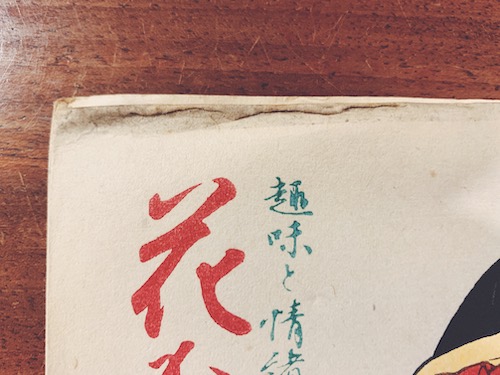 趣味と情緒
花